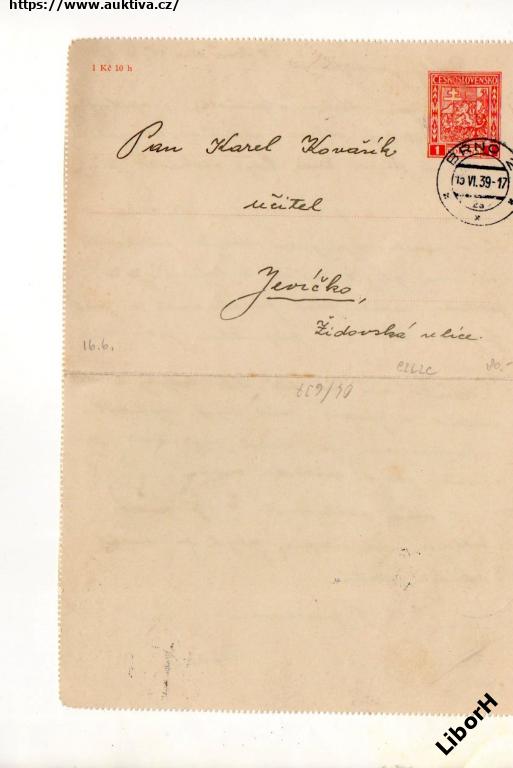 https://www.auktiva.cz/
1 Kč 10 h
ČESKOSLOVENSKO
1
Pan Karel Kovařík
BRNO
15 VI. 39-17
2a
učitel
Jevíčko,
Židovská ulice.
16.6.
80.-
LiborH